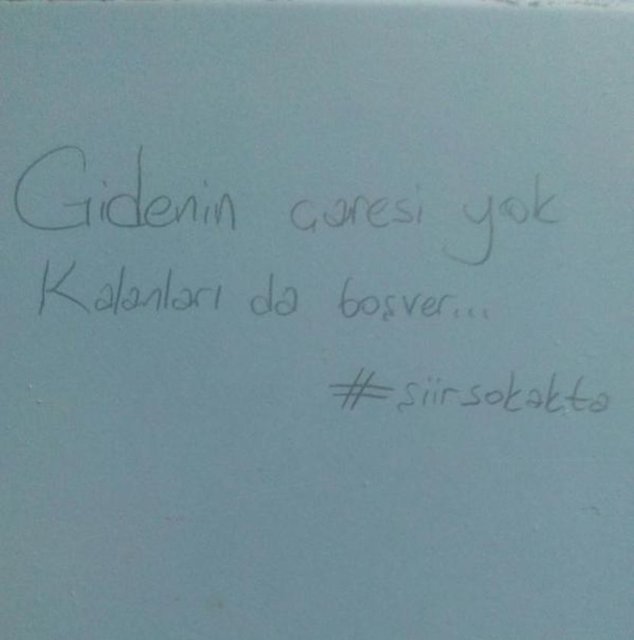 Gidenin çaresi yok
Kalanları da boşver...
#şiirsokakta